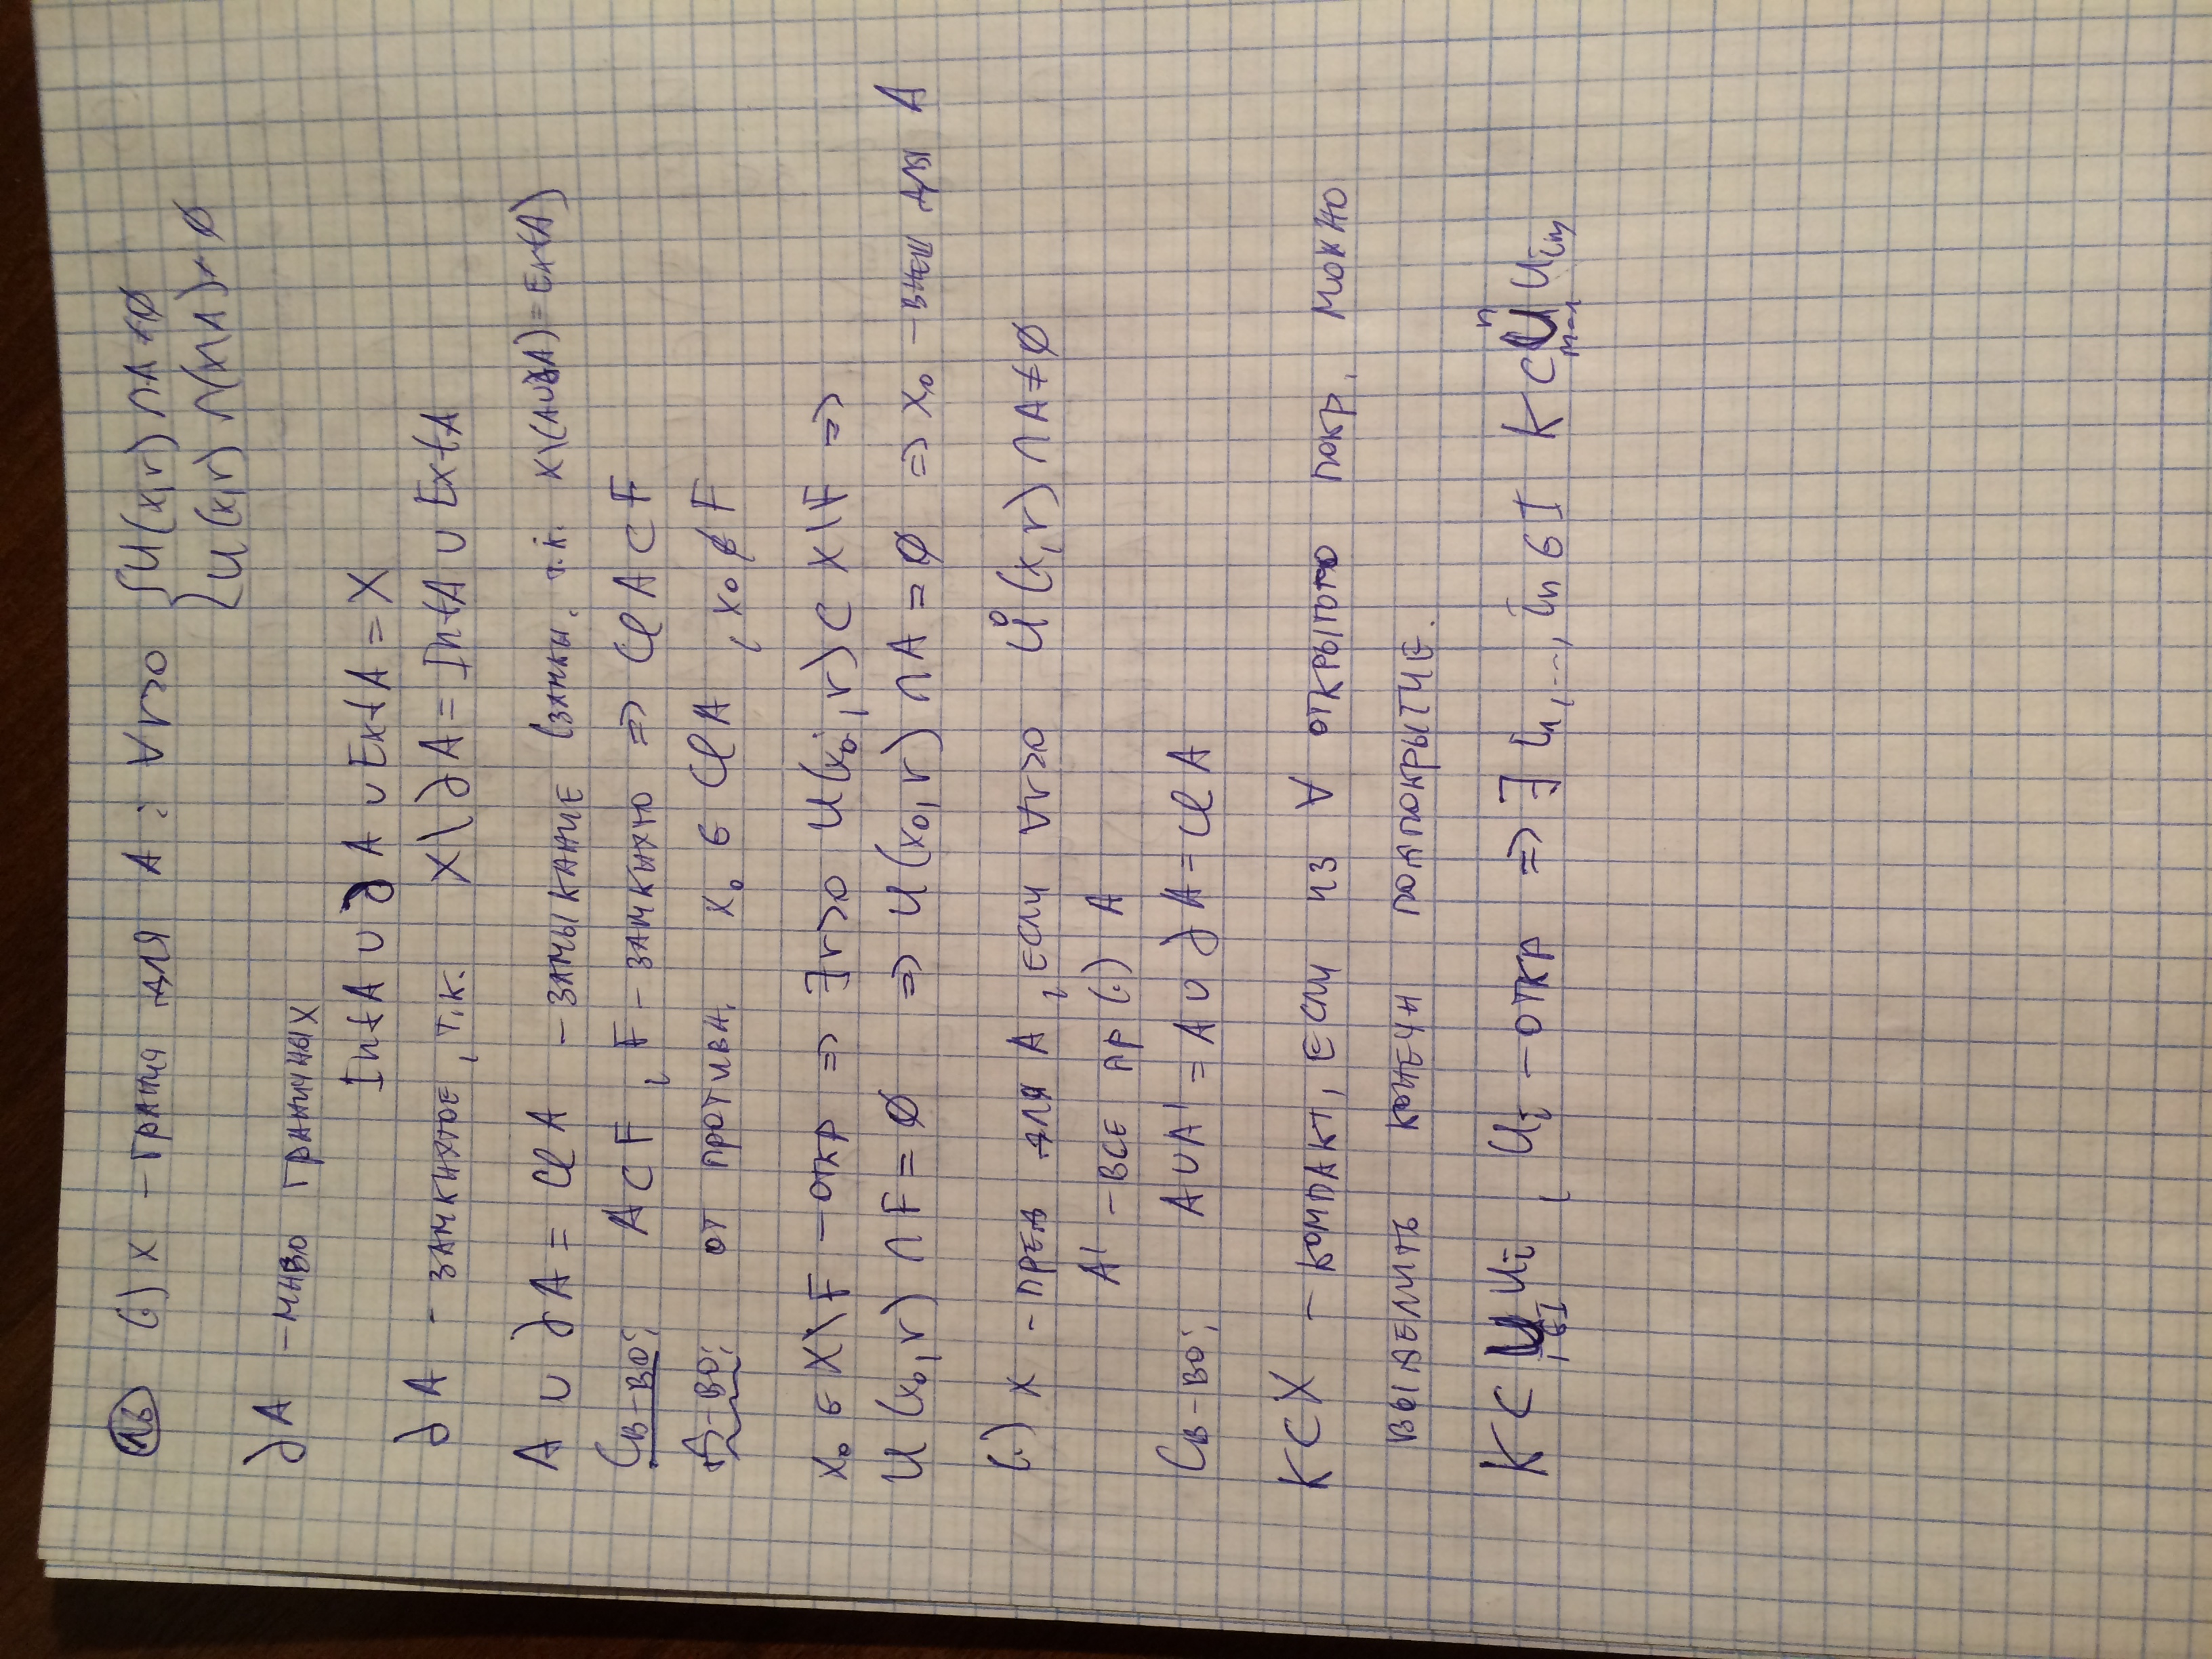 16 (.) x – гранич для A : ∀r>0 { U(x,r) ∩ A ≠ ∅
{ U(x,r) ∩ (X\A) ≠ ∅
∂A – мн-во граничных
Int A ∪ ∂A ∪ Ext A = X
∂A – замкнутое, т.к. X \ ∂A = Int A ∪ Ext A
A ∪ ∂A = Cl A – замыкание (замкн. т.к. X\(A∪∂A) = Ext A)
Св-во: A ⊂ F, F – замкнуто ⇒ Cl A ⊂ F
Д-во: от противн. x₀ ∈ Cl A, x₀ ∉ F
x₀ ∈ X\F – откр ⇒ ∃r>0 U(x₀, r) ⊂ X\F ⇒
U(x₀, r) ∩ F = ∅ ⇒ U(x₀, r) ∩ A = ∅ ⇒ x₀ – внеш для A
(.) x – пред для A, если ∀r>0 Ů(x, r) ∩ A ≠ ∅
A' – все пр (.) A
Св-во: A∪A' = A ∪ ∂A = Cl A
K⊂X – компакт, если из ∀ открытого покр. можно
выделить конечн подпокрытие.
K ⊂ ⋃_{i∈I} U_i, U_i – откр ⇒ ∃ i₁, ..., iₙ ∈ I K ⊂ ⋃_{m=1}^{n} U_{i_m}